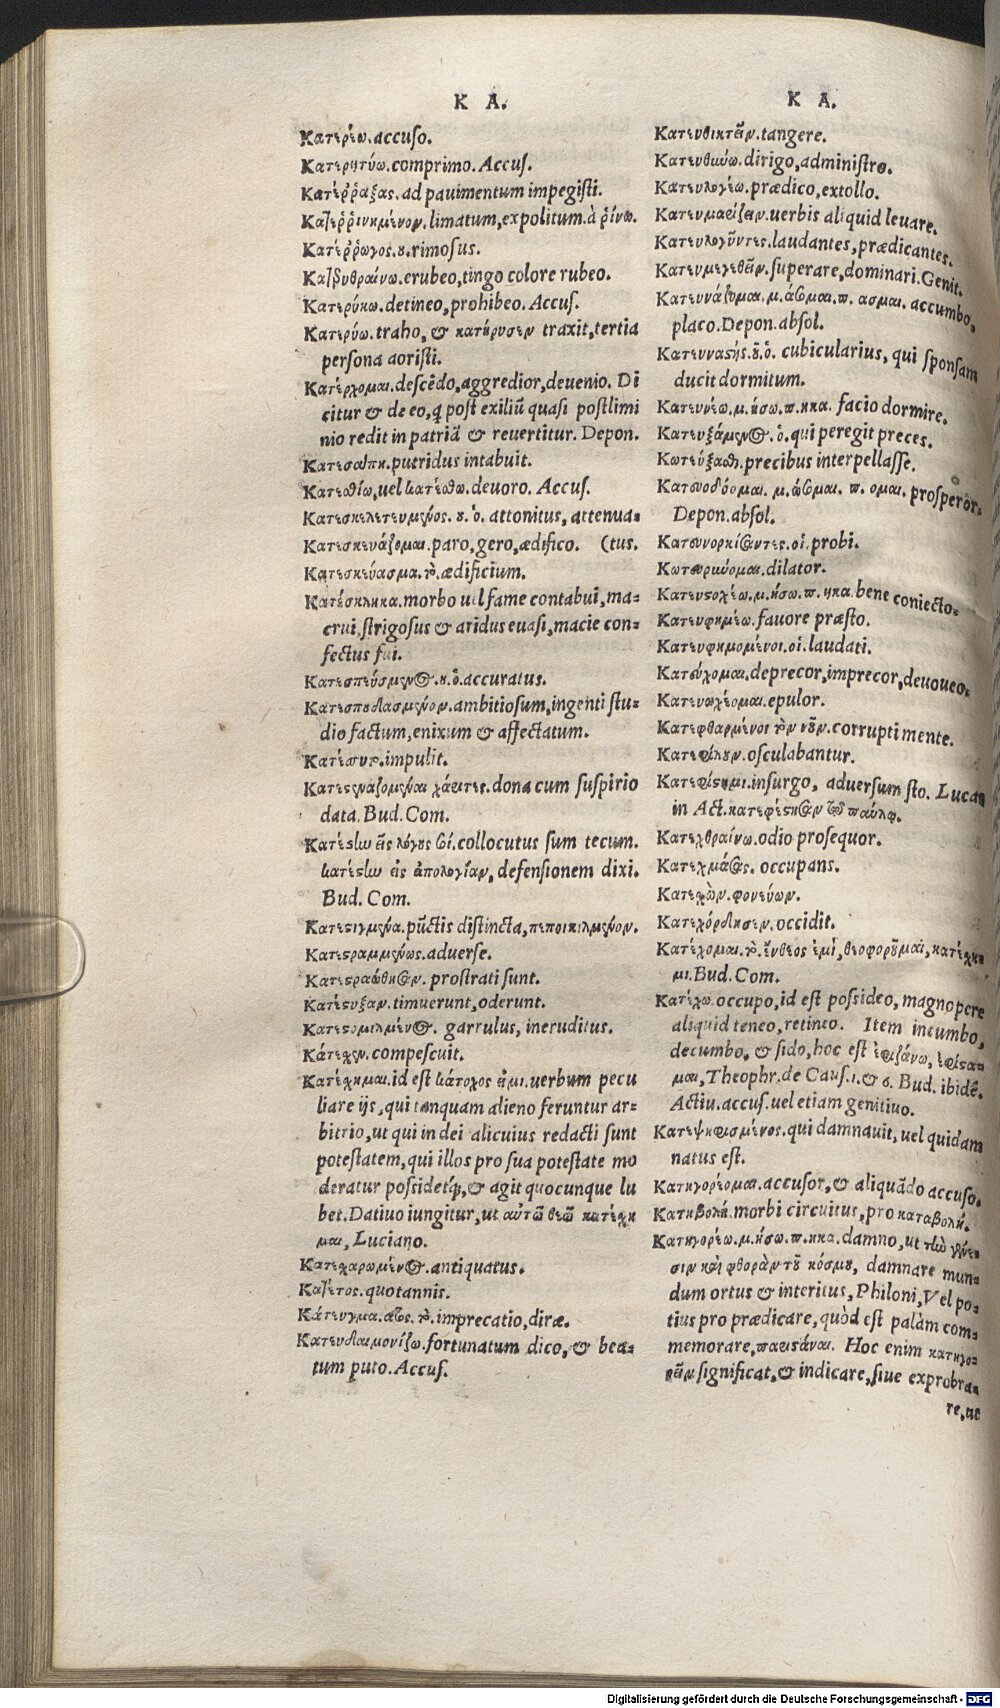 K A.
Κατερέω. accuso.
Κατερητύω. comprimo. Accus.
Κατέῤῥαξας. ad pauimentum impegisti.
Κατεῤῥινημένον. limatum, expolitum. à ῥίνω.
Κατέῤῥωγος. ου. rimosus.
Κατερυθραίνω. erubeo, tingo colore rubeo.
Κατερύκω. detineo, prohibeo. Accus.
Κατερύω. traho, & κατήρυσεν traxit, tertia
persona aoristi.
Κατέρχομαι. descẽdo, aggredior, deuenio. Di
citur & de eo, q̃ post exiliũ quasi postlimi
nio redit in patriã & reuertitur. Depon.
Κατεσάπη. putridus intabuit.
Κατεσθίω, uel κατέσθω. deuoro. Accus.
Κατεσκελετευμένος. ου. ὁ. attonitus, attenua=
Κατεσκευάζομαι. paro, gero, ædifico. (tus.
Κατεσκεύασμα. τὸ. ædificium.
Κατέσκληκα. morbo uel fame contabui, ma=
crui. strigosus & aridus euasi, macie con=
fectus fui.
Κατεσπευσμένος. ου. ὁ. accuratus.
Κατεσπουδασμένον. ambitiosum, ingenti stu=
dio factum, enixum & affectatum.
Κατέσσυτο. impulit.
Κατεστεναγμέναι χάριτες. dona cum suspirio
data. Bud. Com.
Κατέστην εἰς λόγους σοί. collocutus sum tecum.
κατέστην εἰς ἀπολογίαν, defensionem dixi.
Bud. Com.
Κατεστιγμένα. pũctis distincta, πεποικιλμένον.
Κατεστραμμένως. aduerse.
Κατεστρώθησαν. prostrati sunt.
Κατέστυξαν. timuerunt, oderunt.
Κατεστομιλμένος. garrulus, ineruditus.
Κάτεχεν. compescuit.
Κατέχημαι. id est κάτοχος εἰμι. uerbum pecu
liare ijs, qui tanquam alieno feruntur ar=
bitrio, ut qui in dei alicuius redacti sunt
potestatem, qui illos pro sua potestate mo
deratur possidetq́;, & agit quocunque lu
bet. Datiuo iungitur, ut αὐτῶ θεῶ κατέχη
μαι, Luciano.
Κατεχαρωμένος. antiquatus.
Κατέτος. quotannis.
Κάτευγμα. ατος. τὸ. imprecatio, diræ.
Κατευδαιμονίζω. fortunatum dico, & bea=
tum puto. Accus.
K A.
Κατευθικτεῖν. tangere.
Κατευθύνω. dirigo, administro.
Κατευλογέω. prædico, extollo.
Κατευμαρίζειν. uerbis aliquid leuare.
Κατευλογοῦντες. laudantes, prædicantes.
Κατευμεγεθεῖν. superare, dominari. Genit.
Κατευνάζομαι. μ. άσομαι. π. ασμαι. accumbo,
placo. Depon. absol.
Κατευναστής. οῦ. ὁ. cubicularius, qui sponsam
ducit dormitum.
Κατευνέω. μ. ήσω. π. ηκα. facio dormire.
Κατευξάμενος. ὁ. qui peregit preces.
Κατεύξασθαι. precibus interpellasse.
Κατευοδόομαι. μ. ώσομαι. π. ομαι. prosperor.
Depon. absol.
Κατευνορκίσαντες. οἱ. probi.
Κατευρκύομαι. dilator.
Κατευστοχέω. μ. ήσω. π. ηκα. bene coniecto.
Κατευφημέω. fauore præsto.
Κατευφημομένοι. οἱ. laudati.
Κατεύχομαι. deprecor, imprecor, deuoueo.
Κατευωχέομαι. epulor.
Κατεφθαρμένοι τὸν νοῦν. corrupti mente.
Κατεφίλουν. osculabantur.
Κατεφίστημι. insurgo, aduersum sto. Lucas
in Act. κατεφίστησαν τῷ παύλῳ.
Κατεχθραίνω. odio prosequor.
Κατεχμάσας. occupans.
Κατεχὼν. φονεύων.
Κατεχόρδησεν. occidit.
Κατέχομαι. τὸ. ἔνθεος ἐμί, θεοφοροῦμαι, κατέχη
μι. Bud. Com.
Κατέχω. occupo, id est possideo, magnopere
aliquid teneo, retineo. Item incumbo,
decumbo, & sido, hoc est ἐφιζάνω, ἐφίστα=
μαι, Theophr. de Caus. 1. & 6. Bud. ibidẽ.
Actiu. accus. uel etiam genitiuo.
Κατεψηφισμένος. qui damnauit, uel quidam
natus est.
Κατηγορέομαι. accusor, & aliquãdo accuso.
Κατηβολή. morbi circuitus, pro καταβολή.
Κατηγορέω. μ. ήσω. π. ηκα. damno, ut τὴν γένε=
σιν καὶ φθορὰν τοῦ κόσμου, damnare mun=
dum ortus & interitus, Philoni, Vel po=
tius pro prædicare, quòd est palàm com=
memorare, παριστάναι. Hoc enim κατηγο=
ρεῖν significat, & indicare, siue exprobra=
re, ac
Digitalisierung gefördert durch die Deutsche Forschungsgemeinschaft - DFG